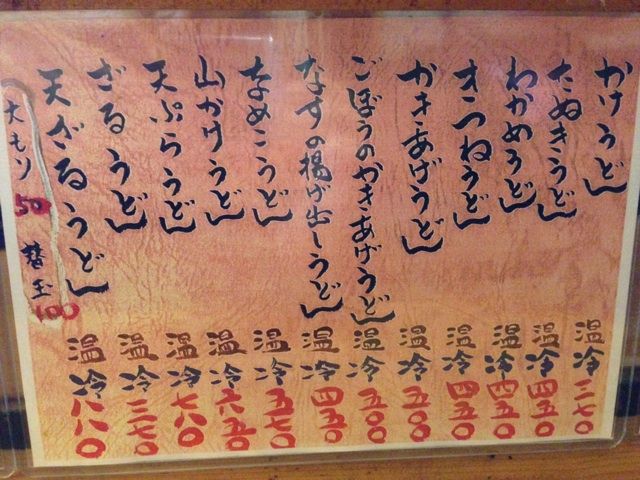 かけうどん 温冷 三七〇
たぬきうどん 温冷 四五〇
わかめうどん 温冷 四五〇
きつねうどん 温冷 四五〇
かきあげうどん 温冷 五〇〇
ごぼうのかきあげうどん 温冷 五〇〇
なすの揚げ出しうどん 温冷 四五〇
なめこうどん 温冷 五七〇
山かけうどん 温冷 六五〇
天ぷらうどん 温冷 七八〇
ざるうどん 温冷 三七〇
天ざるうどん 温冷 八八〇
大もり 50 替玉 100